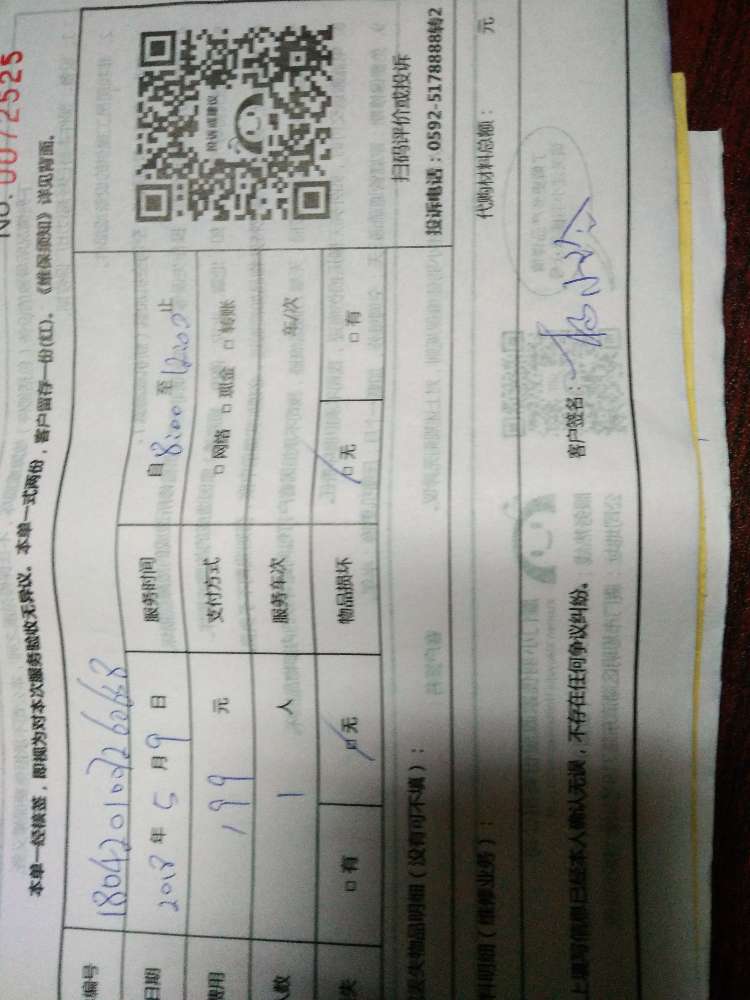 NO. 0072525
本单一经核签，即视为对本次服务验收无异议。本单一式两份，客户留存一份(红)。《维保须知》详见背面。
编号 1804201007266668
日期 2018 年 5 月 9 日 服务时间 自 8:00 至 12:00 止
费用 199 元 支付方式 □ 网络 □ 现金 □ 转账
人数 1 人 服务车次 车/次
失 □ 有 □ 无 物品损坏 □ 无 □ 有
投诉或建议
扫码评价或投诉
投诉电话：0592-5178888转2
失物品明细（没有可不填）：
料明细（维修业务）： 代购材料总额： 元
上填写信息已经本人确认无误，不存在任何争议纠纷。 客户签名：